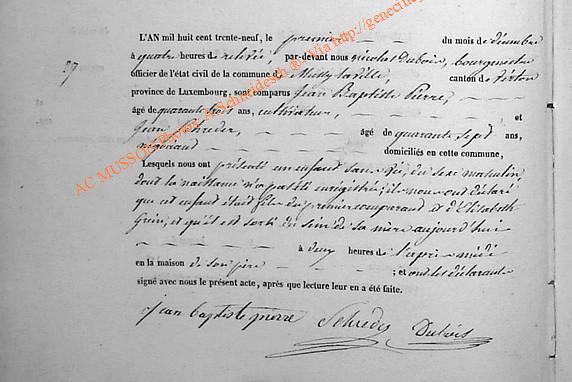 L'AN mil huit cent trente-neuf, le premier du mois de décembre
à quatre heures de relevée, par-devant nous Nicolas Dubois, bourgmestre
27
officier de l'état civil de la commune de Mussy la ville, canton de Virton
province de Luxembourg, sont comparus Jean Baptiste Pierre,
âgé de quarante trois ans, cultivateur, et
Jean Schreder, âgé de quarante sept ans,
négociant domiciliés en cette commune,
Lesquels nous ont présenté un enfant sans vie, du sexe masculin
dont la naissance n'a pas été enregistrée; ils nous ont déclaré
que cet enfant était fils du premier comparant et d'Elisabeth
et qu'il est sorti du sein de sa mère aujourd'hui
à deux heures de l'après-midi
en la maison de son père ; et ont les déclarants
signé avec nous le présent acte, après que lecture leur en a été faite.
jean baptiste pierre Schreder Dubois
AC MUSSON Photog A Schneidesch & Via http://genecin